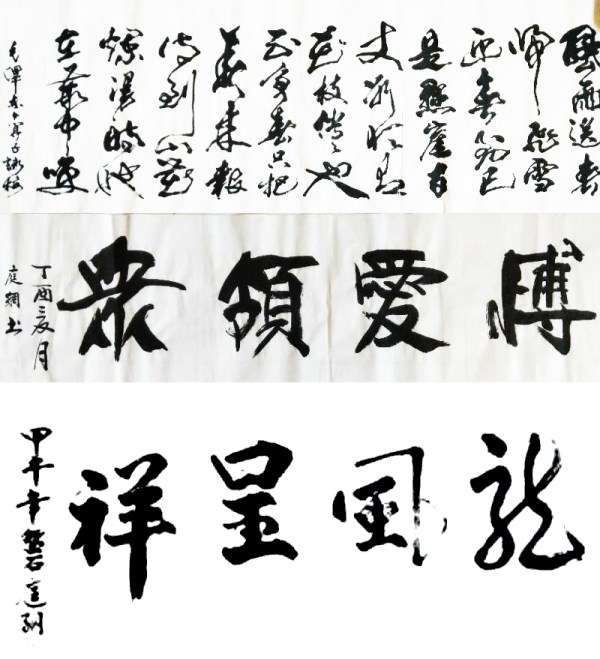 風雨送春
歸飛雪
迎春到已
是懸崖百
丈冰猶有
花枝俏々也
不爭春只把
春來報
待到山花
爛漫時她
在叢中笑
毛澤東卜算子詠梅
博愛領眾
丁酉月
庭綱書
龍鳳呈祥
甲午年磐石